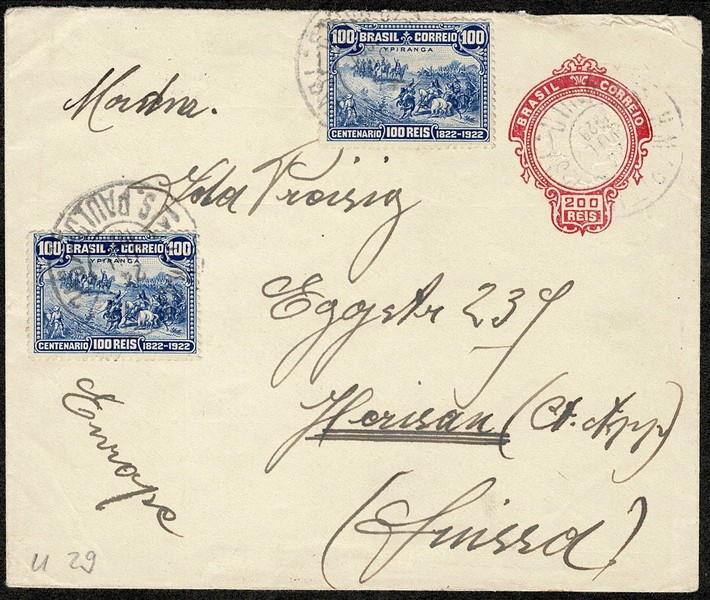 100 BRASIL CORREIO 100
YPIRANGA
CENTENARIO 100 REIS 1822-1922
BRASIL CORREIO
200
REIS
Madna.
Ida Preisig
S. PAULO
100 BRASIL CORREIO 100
YPIRANGA
CENTENARIO 100 REIS 1822-1922
Eggstr 237
Herisau (Ct. App)
(Suissa)
Europe
U 29